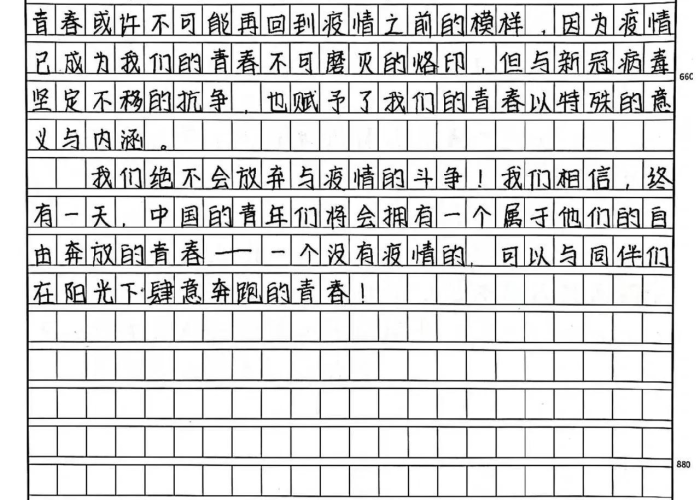 青春或许不可能再回到疫情之前的模样，因为疫情
已成为我们的青春不可磨灭的烙印，但与新冠病毒
660
坚定不移的抗争，也赋予了我们的青春以特殊的意
义与内涵。
我们绝不会放弃与疫情的斗争！我们相信，终
有一天，中国的青年们将会拥有一个属于他们的自
由奔放的青春——一个没有疫情的，可以与同伴们
在阳光下肆意奔跑的青春！
880